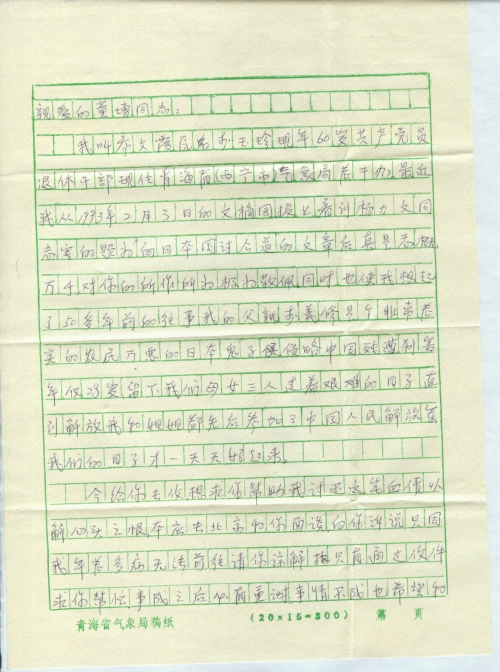 亲爱的童增同志:
我叫乔文霞民办刘玉玲现年60岁共产党员
退休干部现住青海省(西宁市)气象局老干办最近
我从1993年2月3日的文摘周报上看到杨力文同
志写的题为"向日本国讨公道的文章后真是感慨
万千对你的所作所为极为敬佩同时也使我想起
了50多年前的往事我的父亲刘义修是个非常老
实的农民万恶的日本鬼子侵略中国时遭到杀害
年仅28岁留下我们母女三人过着艰难的日子直
到解放我和姐姐都先后参加了中国人民解放军
我们的日子才一天天好起来。
今给你去信想求你帮助我讨还这笔血债以
解心头之恨本应去北京和你面谈向你诉说只因
我年老多病无法前往请你谅解探只有通过信件
求你帮忙事成之后必有重谢事情不成也希望和
青海省气象局稿纸 (20×15=300) 第 页